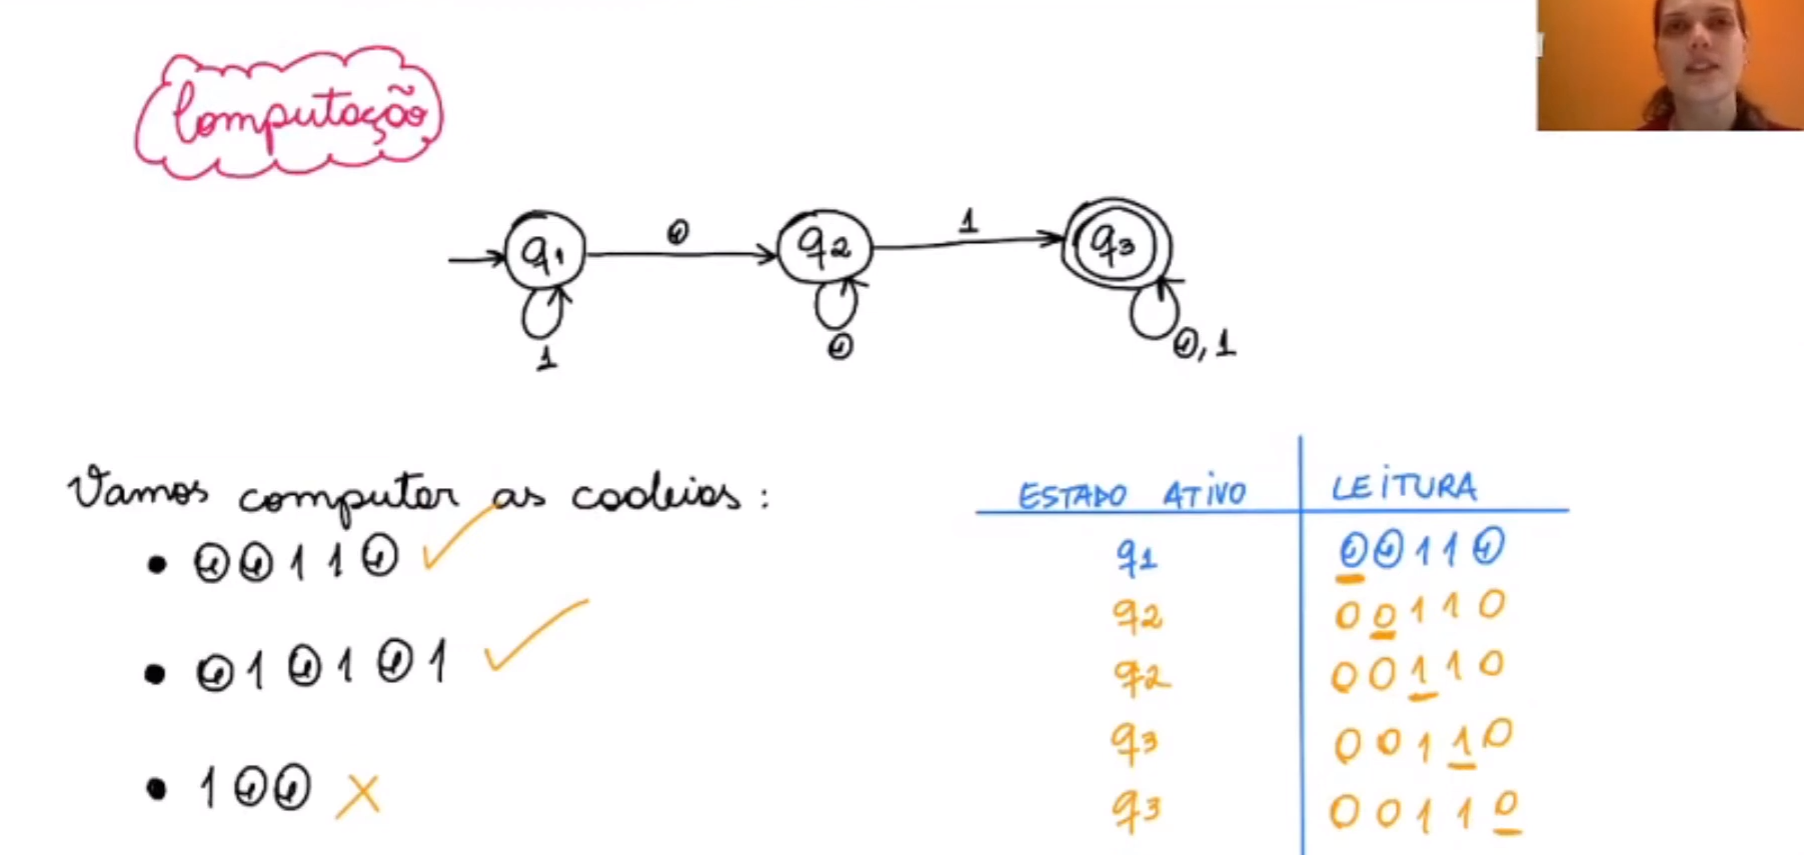 Computação
q1 0 q2 1 q3
1 0 0,1
Vamos computar as cadeias:
• 00110 ✓
• 010101 ✓
• 100 X
ESTADO ATIVO LEITURA
q1 00110
q2 00110
q2 00110
q3 00110
q3 00110